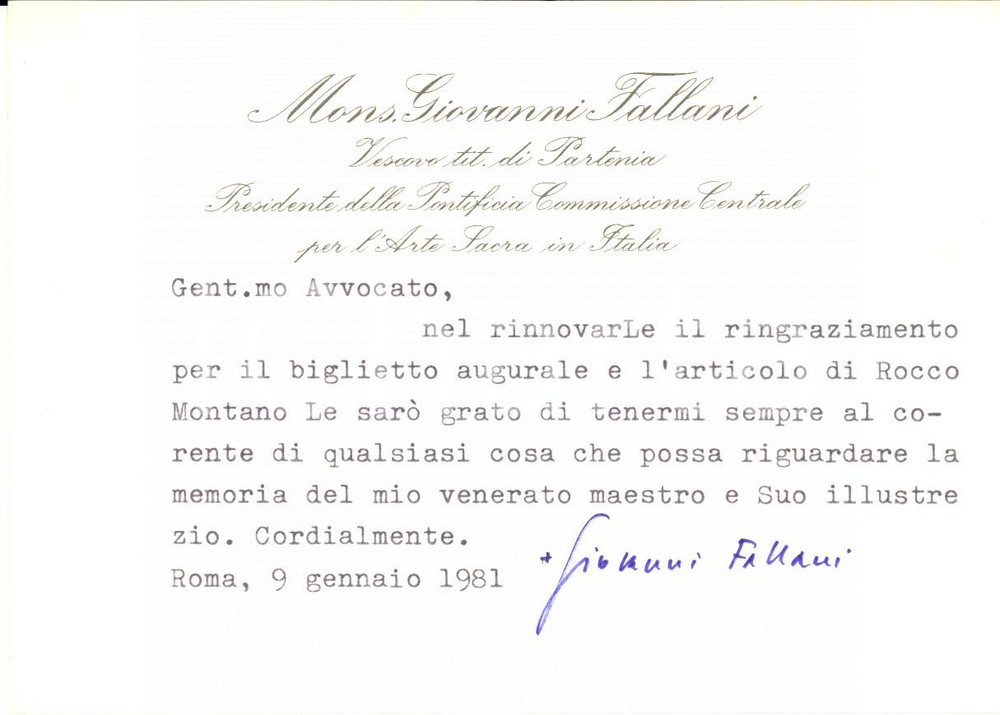 Mons. Giovanni Fallani
Vescovo tit. di Partenia
Presidente della Pontificia Commissione Centrale
per l'Arte Sacra in Italia
Gent.mo Avvocato,
nel rinnovarLe il ringraziamento
per il biglietto augurale e l'articolo di Rocco
Montano Le sarò grato di tenermi sempre al co-
rente di qualsiasi cosa che possa riguardare la
memoria del mio venerato maestro e Suo illustre
zio. Cordialmente.
+ Giovanni Fallani
Roma, 9 gennaio 1981